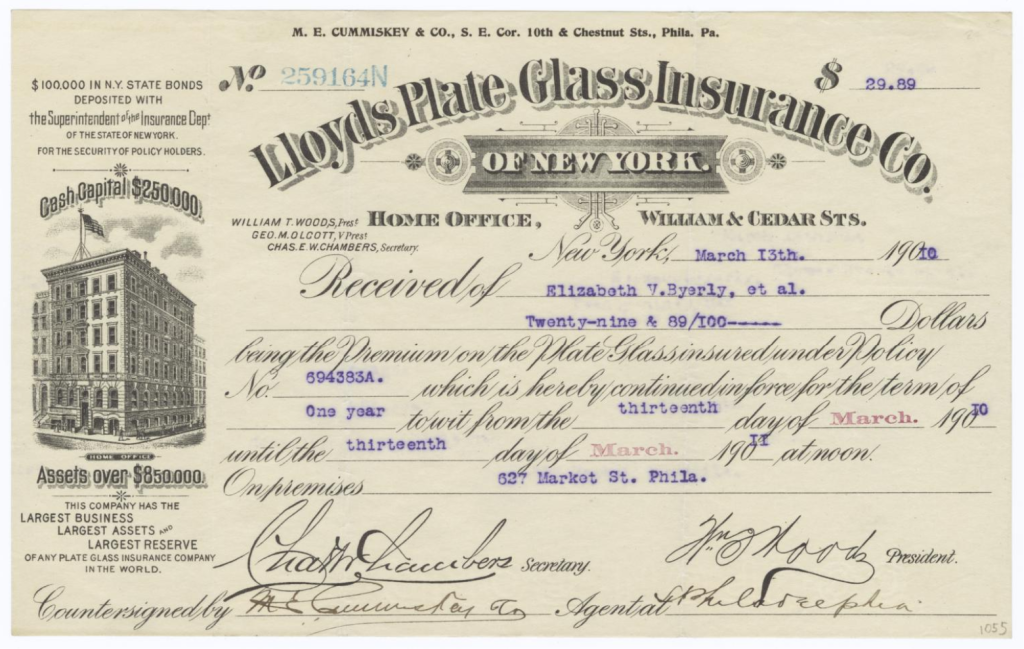 M. E. CUMMISKEY & CO., S. E. Cor. 10th & Chestnut Sts., Phila. Pa.
$100.000 IN N.Y. STATE BONDS
DEPOSITED WITH
the Superintendent of the Insurance Dept
OF THE STATE OF NEW YORK.
FOR THE SECURITY OF POLICY HOLDERS.
Cash Capital $250.000.
HOME OFFICE
Assets over $850.000.
THIS COMPANY HAS THE
LARGEST BUSINESS
LARGEST ASSETS AND
LARGEST RESERVE
OF ANY PLATE GLASS INSURANCE COMPANY
IN THE WORLD.
No 259164N $ 29.89
Lloyds Plate Glass Insurance Co.
OF NEW YORK.
WILLIAM T. WOODS, Prest
GEO. M. OLCOTT, V Prest
CHAS. E. W. CHAMBERS, Secretary.
HOME OFFICE, WILLIAM & CEDAR STS.
New York, March I3th. 190I0
Received of Elizabeth V.Byerly, et al.
Twenty-nine & 89/I00------ Dollars
being the Premium on the Plate Glass insured under Policy
No. 694383A. which is hereby continued in force for the term of
One year to wit from the thirteenth day of March. 190I0
until the thirteenth day of March. 190II at noon.
On premises 627 Market St. Phila.
Chas W Chambers Secretary. Wm T Woods President.
Countersigned by M E Cummiskey Co Agent at Philadelphia
1055